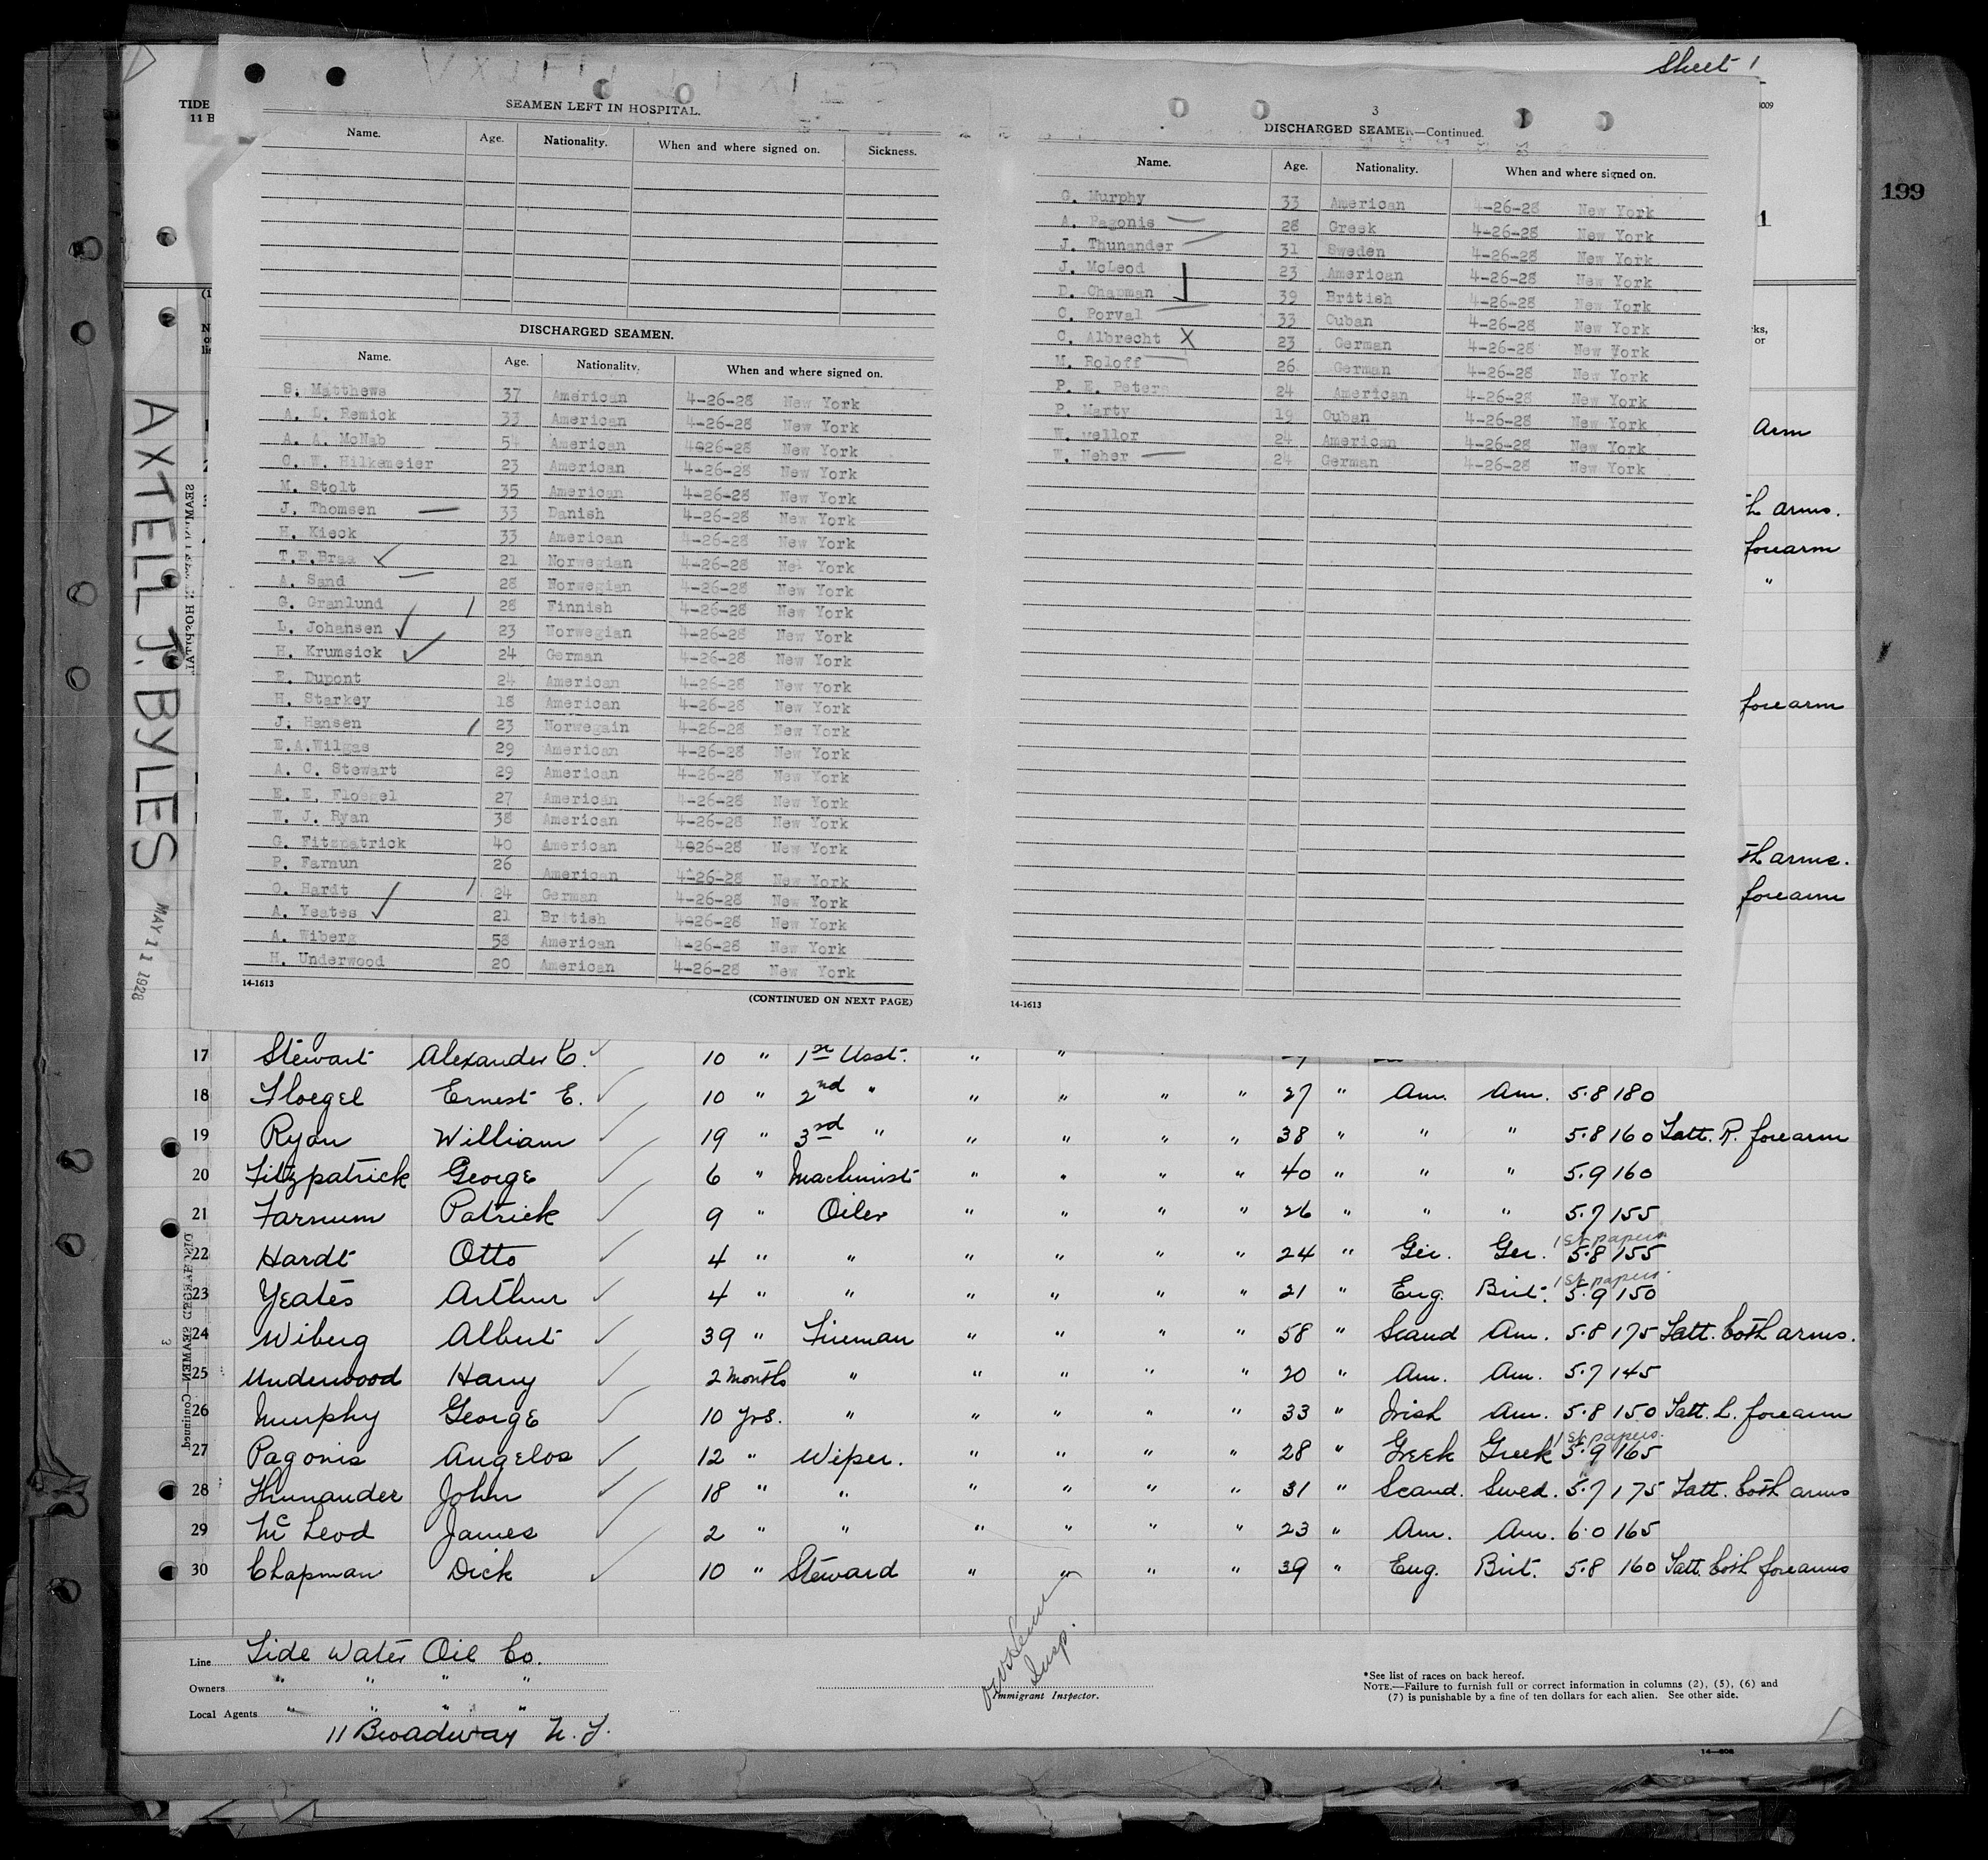 Sheet 1
199
TIDE
11 B
AXTELL J. BYLES
MAY 11 1928
SEAMEN LEFT IN HOSPITAL.
Name. Age. Nationality. When and where signed on. Sickness.
DISCHARGED SEAMEN.
Name. Age. Nationality. When and where signed on.
S. Matthews 37 American 4-26-28 New York
A. L. Remick 33 American 4-26-28 New York
A. A. McNab 54 American 4926-28 New York
C. W. Hilkemeier 23 American 4-26-28 New York
M. Stolt 35 American 4-26-28 New York
J. Thomsen — 33 Danish 4-26-28 New York
H. Kieck 33 American 4-26-28 New York
T.E.Braa ✓ 21 Norwegian 4-26-28 New York
A. Sand — 28 Norwegian 4-26-28 New York
G. Granlund / 28 Finnish 4-26-28 New York
L. Johansen ✓ 23 Norwegian 4-26-28 New York
H. Krumsick ✓ 24 German 4-26-28 New York
E. Dupont 24 American 4-26-28 New York
H. Starkey 18 American 4-26-28 New York
J. Hansen / 23 Norwegain 4-26-28 New York
E.A.Wilgas 29 American 4-26-28 New York
A. C. Stewart 29 American 4-26-28 New York
E. E. Floegel 27 American 4-26-28 New York
W. J. Ryan 38 American 4-26-28 New York
G. Fitzpatrick 40 American 4926-28 New York
P. Farnun 26 American 4-26-28 New York
O. Hardt / 24 German 4-26-28 New York
A. Yeates ✓ 21 British 4926-28 New York
A. Wiberg 58 American 4-26-28 New York
H. Underwood 20 American 4-26-28 New York
14-1613
(CONTINUED ON NEXT PAGE)
3
DISCHARGED SEAMEN—Continued.
Name. Age. Nationality. When and where signed on.
G. Murphy 33 American 4-26-28 New York
A. Pagonis — 28 Greek 4-26-28 New York
J. Thunander — 31 Sweden 4-26-28 New York
J. McLeod 23 American 4-26-28 New York
D. Chapman 39 British 4-26-28 New York
C. Porval — 33 Cuban 4-26-28 New York
C. Albrecht X 23 German 4-26-28 New York
M. Roloff — 26 German 4-26-28 New York
P. E. Peters 24 American 4-26-28 New York
P. Marty 19 Cuban 4-26-28 New York
W. vellor 24 American 4-26-28 New York
W. Neher — 24 German 4-26-28 New York
14-1613
1
ks,
or
Arm
th arms.
forearm
"
forearm
th arms.
forearm
17 Stewart Alexander C. ✓ 10 " 1st Asst. " "
18 Floegel Ernest E. ✓ 10 " 2nd " " " " " 27 " Am. Am. 5.8 180
19 Ryan William ✓ 19 " 3rd " " " " " 38 " " " 5.8 160 Tatt. R. forearm
20 Fitzpatrick George ✓ 6 " Machinist " " " " 40 " " " 5.9 160
21 Farnum Patrick ✓ 9 " Oiler " " " " 26 " " " 5.7 155
22 Hardt Otto ✓ 4 " " " " " " 24 " Ger. Ger. 1st papers 5.8 155
23 Yeates Arthur ✓ 4 " " " " " " 21 " Eng. Brit. 1st papers. 5.9 150
24 Wiberg Albert ✓ 39 " Fireman " " " " 58 " Scand Am. 5.8 175 Tatt. both arms.
25 Underwood Harry ✓ 2 months " " " " " 20 " Am. Am. 5.7 145
26 Murphy George ✓ 10 yrs. " " " " " 33 " Irish Am. 5.8 150 Tatt. L. forearm
27 Pagonis Angelos ✓ 12 " Wiper. " " " " 28 " Greek Greek 1st papers. 5.9 165
28 Thunander John ✓ 18 " " " " " " 31 " Scand. Swed. 5.7 175 Tatt. both arms
29 McLeod James ✓ 2 " " " " " " 23 " Am. Am. 6.0 165
30 Chapman Dick ✓ 10 " Steward " " " " 39 " Eng. Brit. 5.8 160 Tatt. both forearms
Line Tide Water Oil Co.
Owners " " " "
Local Agents " " " "
11 Broadway N.Y.
Insp.
Immigrant Inspector.
*See list of races on back hereof.
NOTE.—Failure to furnish full or correct information in columns (2), (5), (6) and
(7) is punishable by a fine of ten dollars for each alien. See other side.